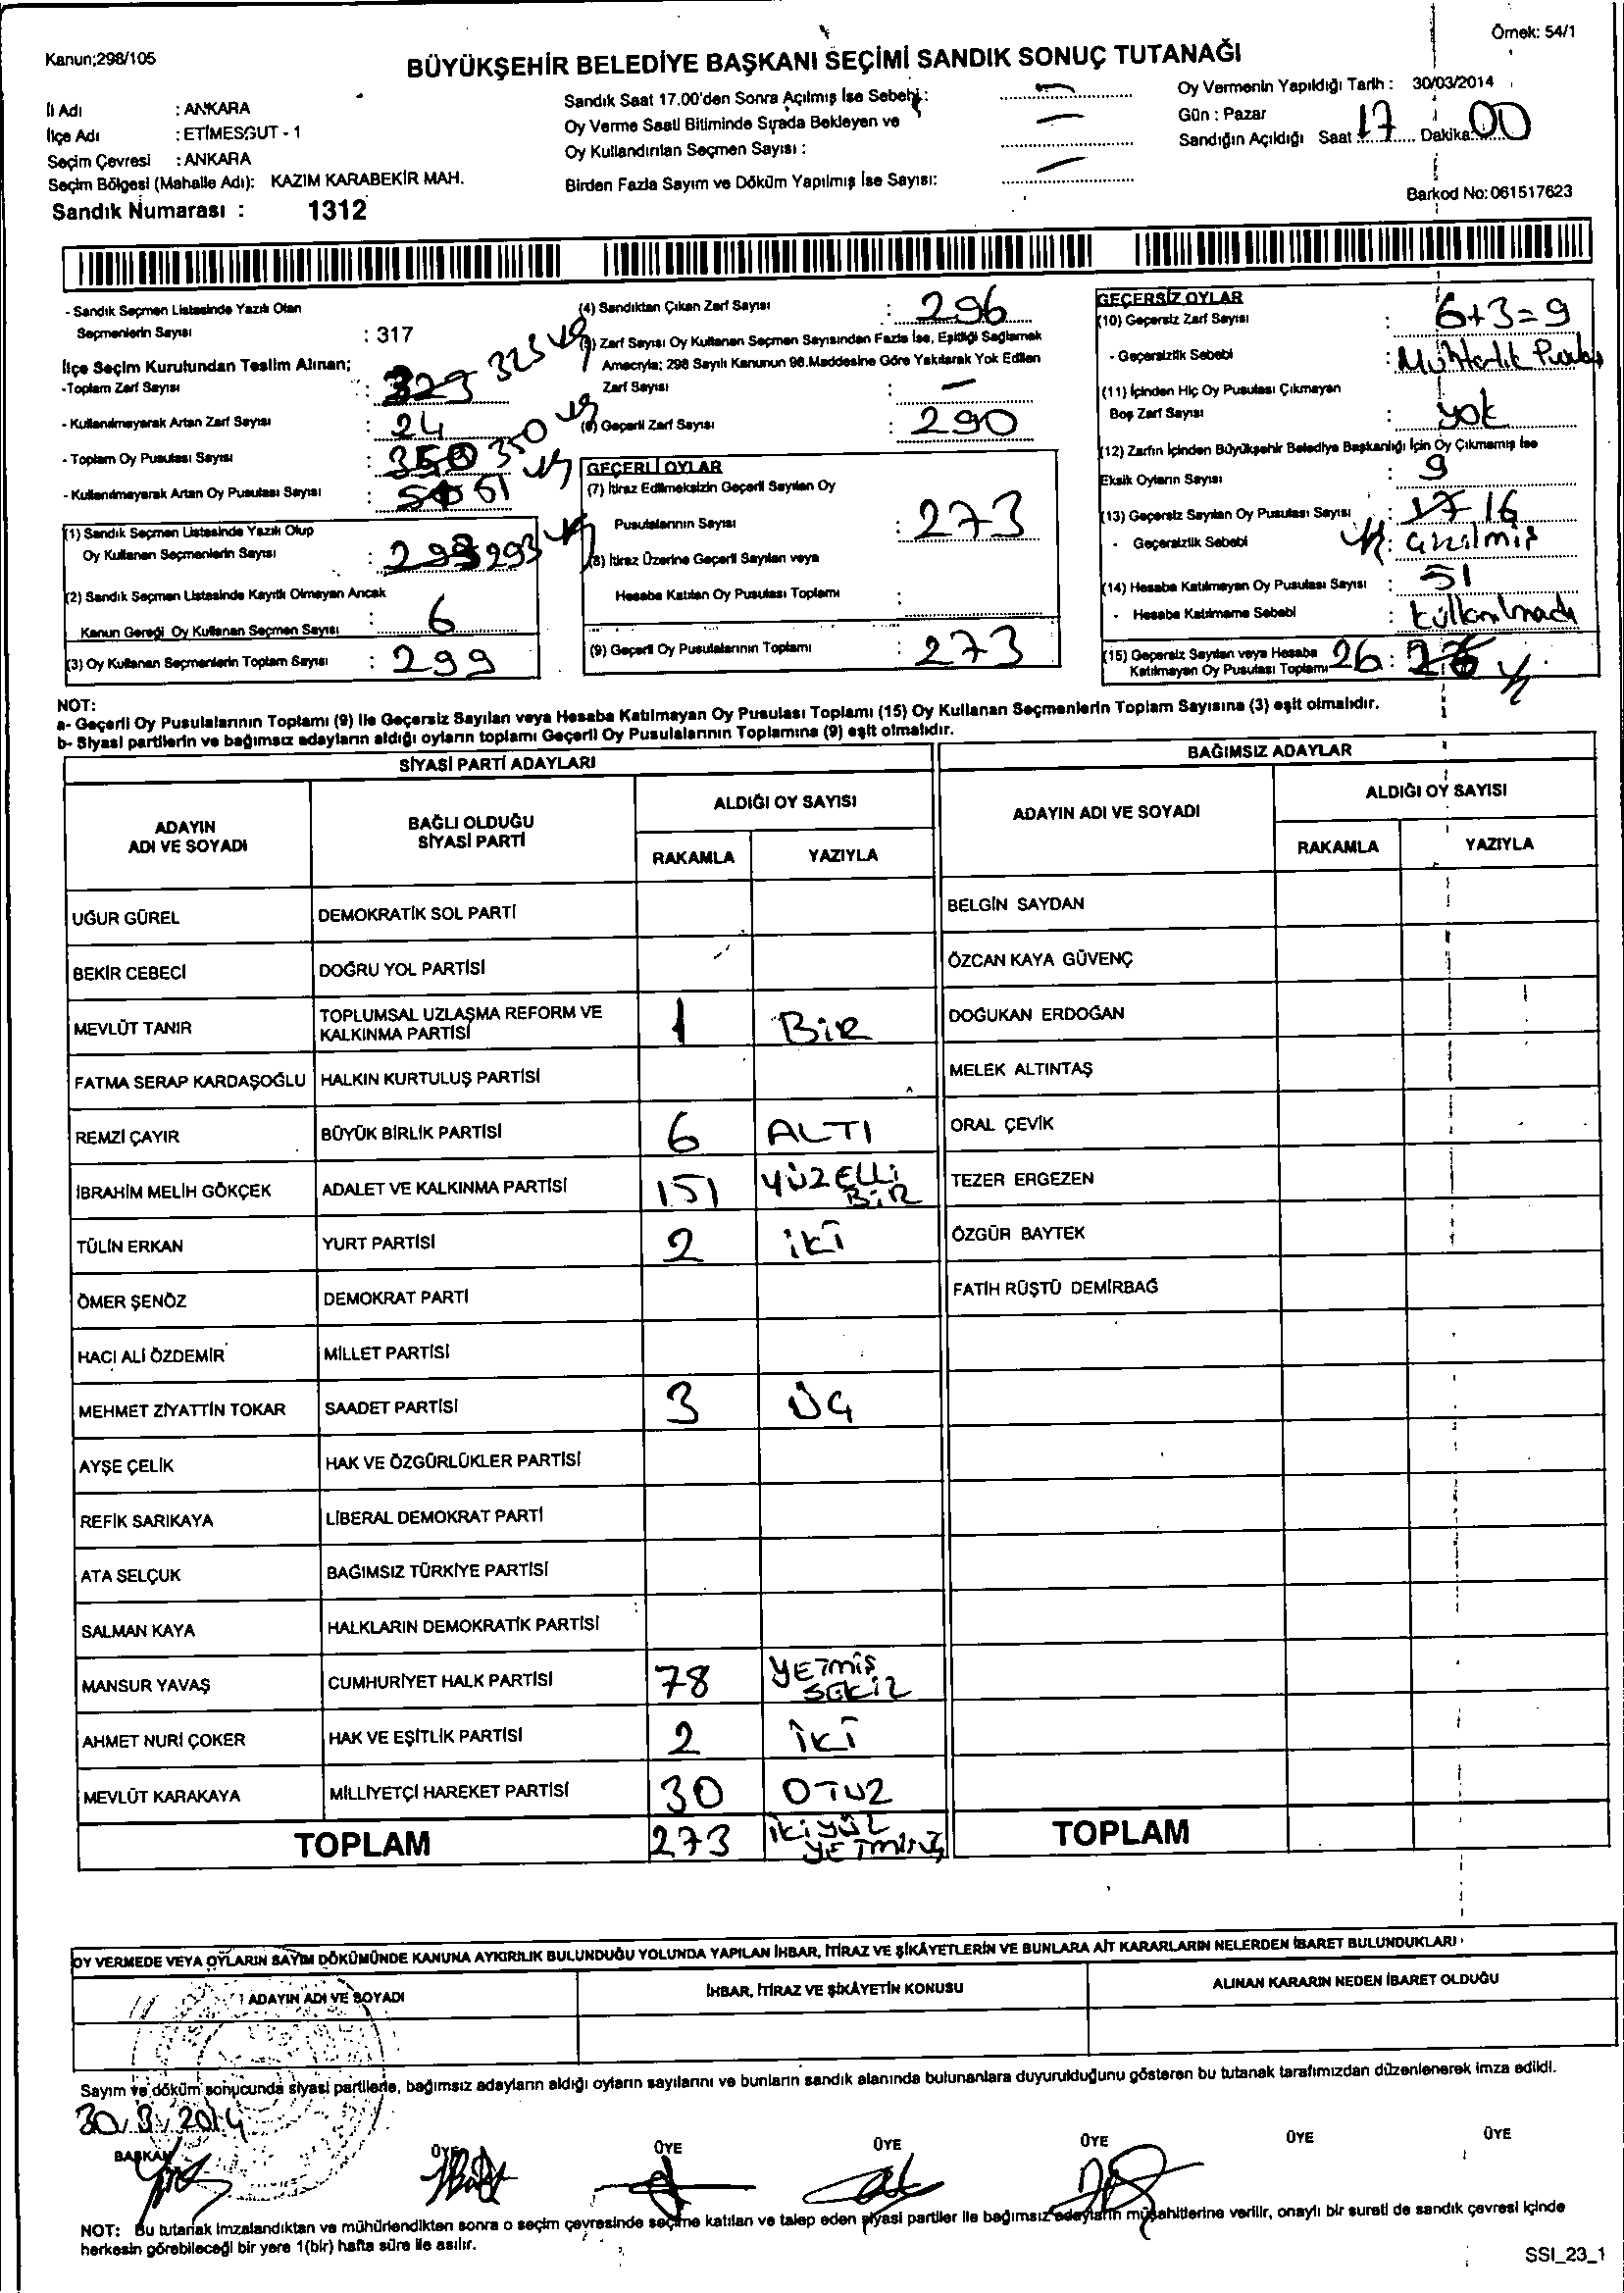 Kanun;298/105
Örnek: 54/1
BÜYÜKŞEHİR BELEDİYE BAŞKANI SEÇİMİ SANDIK SONUÇ TUTANAĞI
İl Adı : ANKARA
İlçe Adı : ETİMESGUT - 1
Seçim Çevresi : ANKARA
Seçim Bölgesi (Mahalle Adı): KAZIM KARABEKİR MAH.
Sandık Numarası : 1312
Sandık Saat 17.00'den Sonra Açılmış İse Sebebi :
Oy Verme Saati Bitiminde Sırada Bekleyen ve
Oy Kullandırılan Seçmen Sayısı :
Birden Fazla Sayım ve Döküm Yapılmış İse Sayısı:
Oy Vermenin Yapıldığı Tarih : 30/03/2014
Gün : Pazar
Sandığın Açıldığı Saat 17 Dakika 00
Barkod No: 061517623
- Sandık Seçmen Listesinde Yazılı Olan
Seçmenlerin Sayısı : 317
İlçe Seçim Kurulundan Teslim Alınan;
-Toplam Zarf Sayısı : 323
- Kullanılmayarak Artan Zarf Sayısı : 24
- Toplam Oy Pusulası Sayısı : 350
- Kullanılmayarak Artan Oy Pusulası Sayısı : 51
(1) Sandık Seçmen Listesinde Yazılı Olup
Oy Kullanan Seçmenlerin Sayısı : 293
(2) Sandık Seçmen Listesinde Kayıtlı Olmayan Ancak
Kanun Gereği Oy Kullanan Seçmen Sayısı : 6
(3) Oy Kullanan Seçmenlerin Toplam Sayısı : 299
(4) Sandıktan Çıkan Zarf Sayısı : 296
(5) Zarf Sayısı Oy Kullanan Seçmen Sayısından Fazla İse, Eşitliği Sağlamak
Amacıyla; 298 Sayılı Kanunun 98.Maddesine Göre Yakılarak Yok Edilen
Zarf Sayısı : -
(6) Geçerli Zarf Sayısı : 290
GEÇERLİ OYLAR
(7) İtiraz Edilmeksizin Geçerli Sayılan Oy
Pusulalarının Sayısı : 273
(8) İtiraz Üzerine Geçerli Sayılan veya
Hesaba Katılan Oy Pusulası Toplamı :
(9) Geçerli Oy Pusulalarının Toplamı : 273
GEÇERSİZ OYLAR
(10) Geçersiz Zarf Sayısı : 6+3=9
- Geçersizlik Sebebi : Muhtarlık
(11) İçinden Hiç Oy Pusulası Çıkmayan
Boş Zarf Sayısı : yok
(12) Zarfın İçinden Büyükşehir Belediye Başkanlığı İçin Oy Çıkmamış İse
Eksik Oyların Sayısı : 9
(13) Geçersiz Sayılan Oy Pusulası Sayısı : 17 16
- Geçersizlik Sebebi : çizilmiş
(14) Hesaba Katılmayan Oy Pusulası Sayısı : 51
- Hesaba Katılmama Sebebi : kullanılmadı
(15) Geçersiz Sayılan veya Hesaba
Katılmayan Oy Pusulası Toplamı 26
NOT:
a- Geçerli Oy Pusulalarının Toplamı (9) ile Geçersiz Sayılan veya Hesaba Katılmayan Oy Pusulası Toplamı (15) Oy Kullanan Seçmenlerin Toplam Sayısına (3) eşit olmalıdır.
b- Siyasi partilerin ve bağımsız adayların aldığı oyların toplamı Geçerli Oy Pusulalarının Toplamına (9) eşit olmalıdır.
SİYASİ PARTİ ADAYLARI
ADAYIN ADI VE SOYADI
BAĞLI OLDUĞU SİYASİ PARTİ
ALDIĞI OY SAYISI
RAKAMLA YAZIYLA
UĞUR GÜREL DEMOKRATİK SOL PARTİ
BEKİR CEBECİ DOĞRU YOL PARTİSİ
MEVLÜT TANIR TOPLUMSAL UZLAŞMA REFORM VE KALKINMA PARTİSİ 1 BİR
FATMA SERAP KARDAŞOĞLU HALKIN KURTULUŞ PARTİSİ
REMZİ ÇAYIR BÜYÜK BİRLİK PARTİSİ 6 ALTI
İBRAHİM MELİH GÖKÇEK ADALET VE KALKINMA PARTİSİ 151 YÜZELLİ BİR
TÜLİN ERKAN YURT PARTİSİ 2 İKİ
ÖMER ŞENÖZ DEMOKRAT PARTİ
HACI ALİ ÖZDEMİR MİLLET PARTİSİ
MEHMET ZİYATTİN TOKAR SAADET PARTİSİ 3 ÜÇ
AYŞE ÇELİK HAK VE ÖZGÜRLÜKLER PARTİSİ
REFİK SARIKAYA LİBERAL DEMOKRAT PARTİ
ATA SELÇUK BAĞIMSIZ TÜRKİYE PARTİSİ
SALMAN KAYA HALKLARIN DEMOKRATİK PARTİSİ
MANSUR YAVAŞ CUMHURİYET HALK PARTİSİ 78 YETMİŞ SEKİZ
AHMET NURİ ÇOKER HAK VE EŞİTLİK PARTİSİ 2 İKİ
MEVLÜT KARAKAYA MİLLİYETÇİ HAREKET PARTİSİ 30 OTUZ
TOPLAM 273 İKİYÜZ
BAĞIMSIZ ADAYLAR
ADAYIN ADI VE SOYADI
ALDIĞI OY SAYISI
RAKAMLA YAZIYLA
BELGİN SAYDAN
ÖZCAN KAYA GÜVENÇ
DOĞUKAN ERDOĞAN
MELEK ALTINTAŞ
ORAL ÇEVİK
TEZER ERGEZEN
ÖZGÜR BAYTEK
FATİH RÜŞTÜ DEMİRBAĞ
TOPLAM
OY VERMEDE VEYA OYLARIN SAYIM DÖKÜMÜNDE KANUNA AYKIRILIK BULUNDUĞU YOLUNDA YAPILAN İHBAR, İTİRAZ VE ŞİKÂYETLERİN VE BUNLARA AİT KARARLARIN NELERDEN İBARET BULUNDUKLARI
ADAYIN ADI VE SOYADI
İHBAR, İTİRAZ VE ŞİKÂYETİN KONUSU
ALINAN KARARIN NEDEN İBARET OLDUĞU
Sayım ve döküm sonucunda siyasi partilerle, bağımsız adayların aldığı oyların sayılarını ve bunların sandık alanında bulunanlara duyurulduğunu gösteren bu tutanak tarafımızdan düzenlenerek imza edildi.
30/3/2014
BAŞKAN ÜYE ÜYE ÜYE ÜYE ÜYE ÜYE
NOT: Bu tutanak imzalandıktan ve mühürlendikten sonra o seçim çevresinde seçime katılan ve talep eden siyasi partiler ile bağımsız adayların müşahitlerine verilir, onaylı bir sureti de sandık çevresi içinde
herkesin görebileceği bir yere 1(bir) hafta süre ile asılır.
SSI_23_1